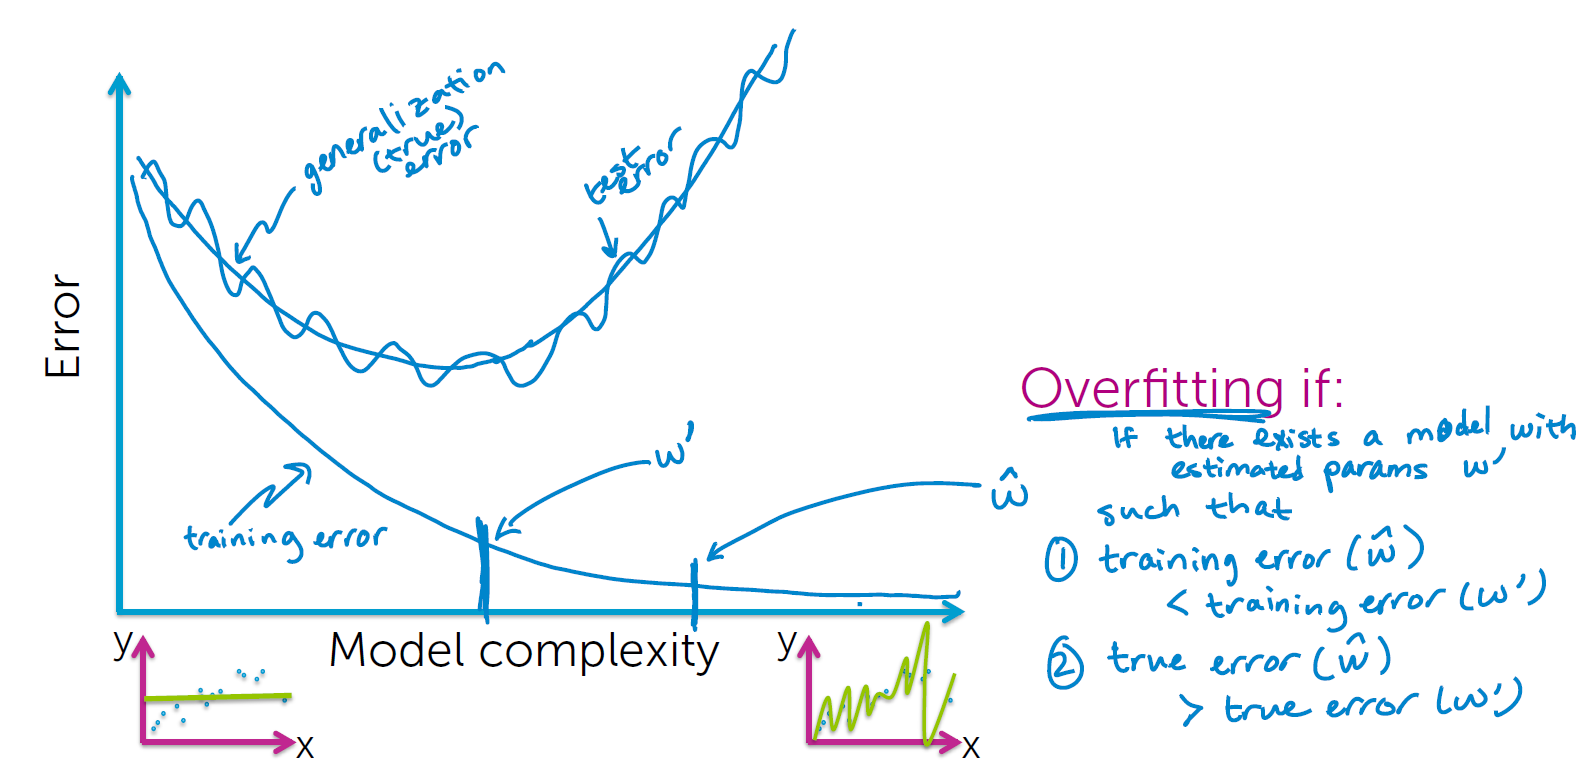 generalization
(true)
error
test
error
Error
w'
ŵ
training error
Model complexity
y
x
y
x
Overfitting if:
If there exists a model with
estimated params w'
such that
① training error (ŵ)
< training error (w')
② true error (ŵ)
> true error (w')